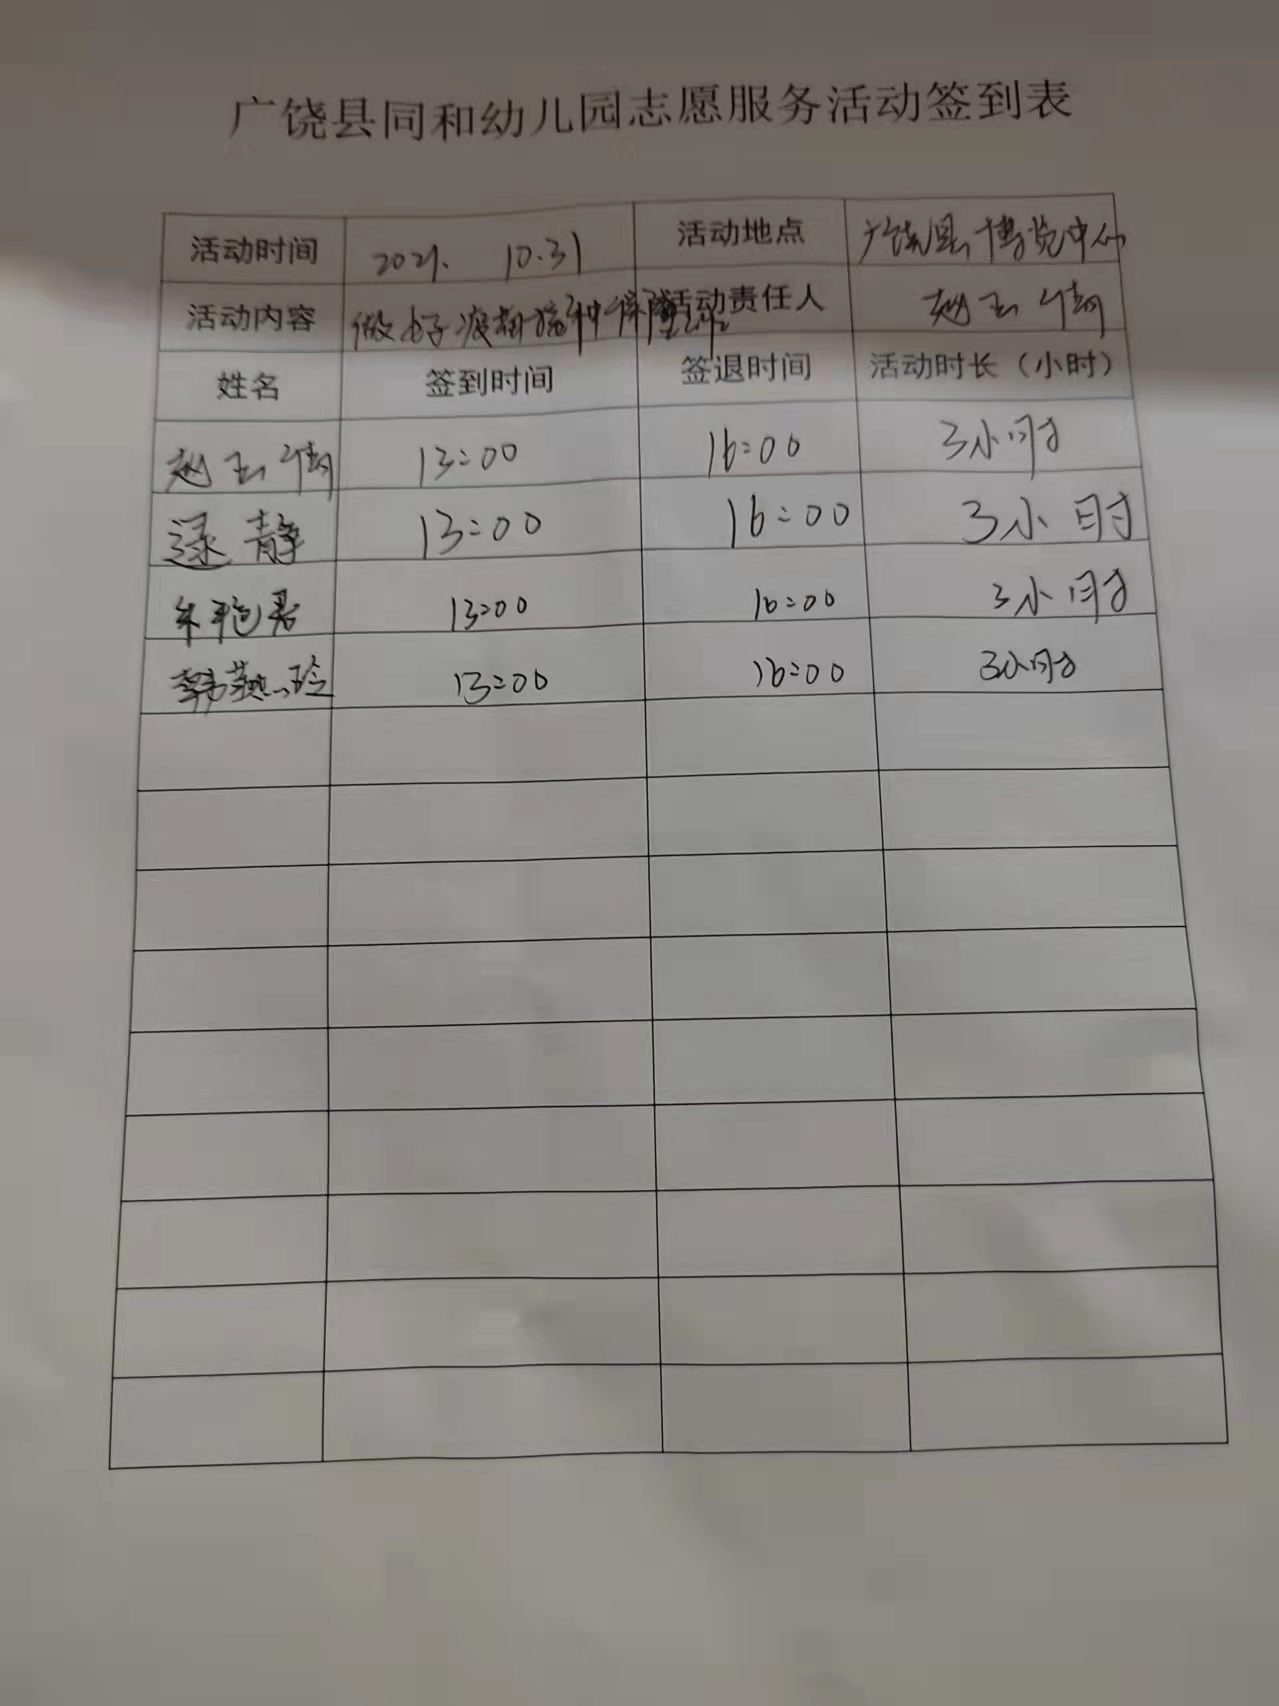 广饶县同和幼儿园志愿服务活动签到表
活动时间 2021. 10.31 活动地点 广饶县博览中心
活动内容 做好疫苗接种保障工作 活动责任人 赵玉倩
姓名 签到时间 签退时间 活动时长（小时）
赵玉倩 13:00 16:00 3小时
逯静 13:00 16:00 3小时
13:00 16:00 3小时
韩燕玲 13:00 16:00 3小时